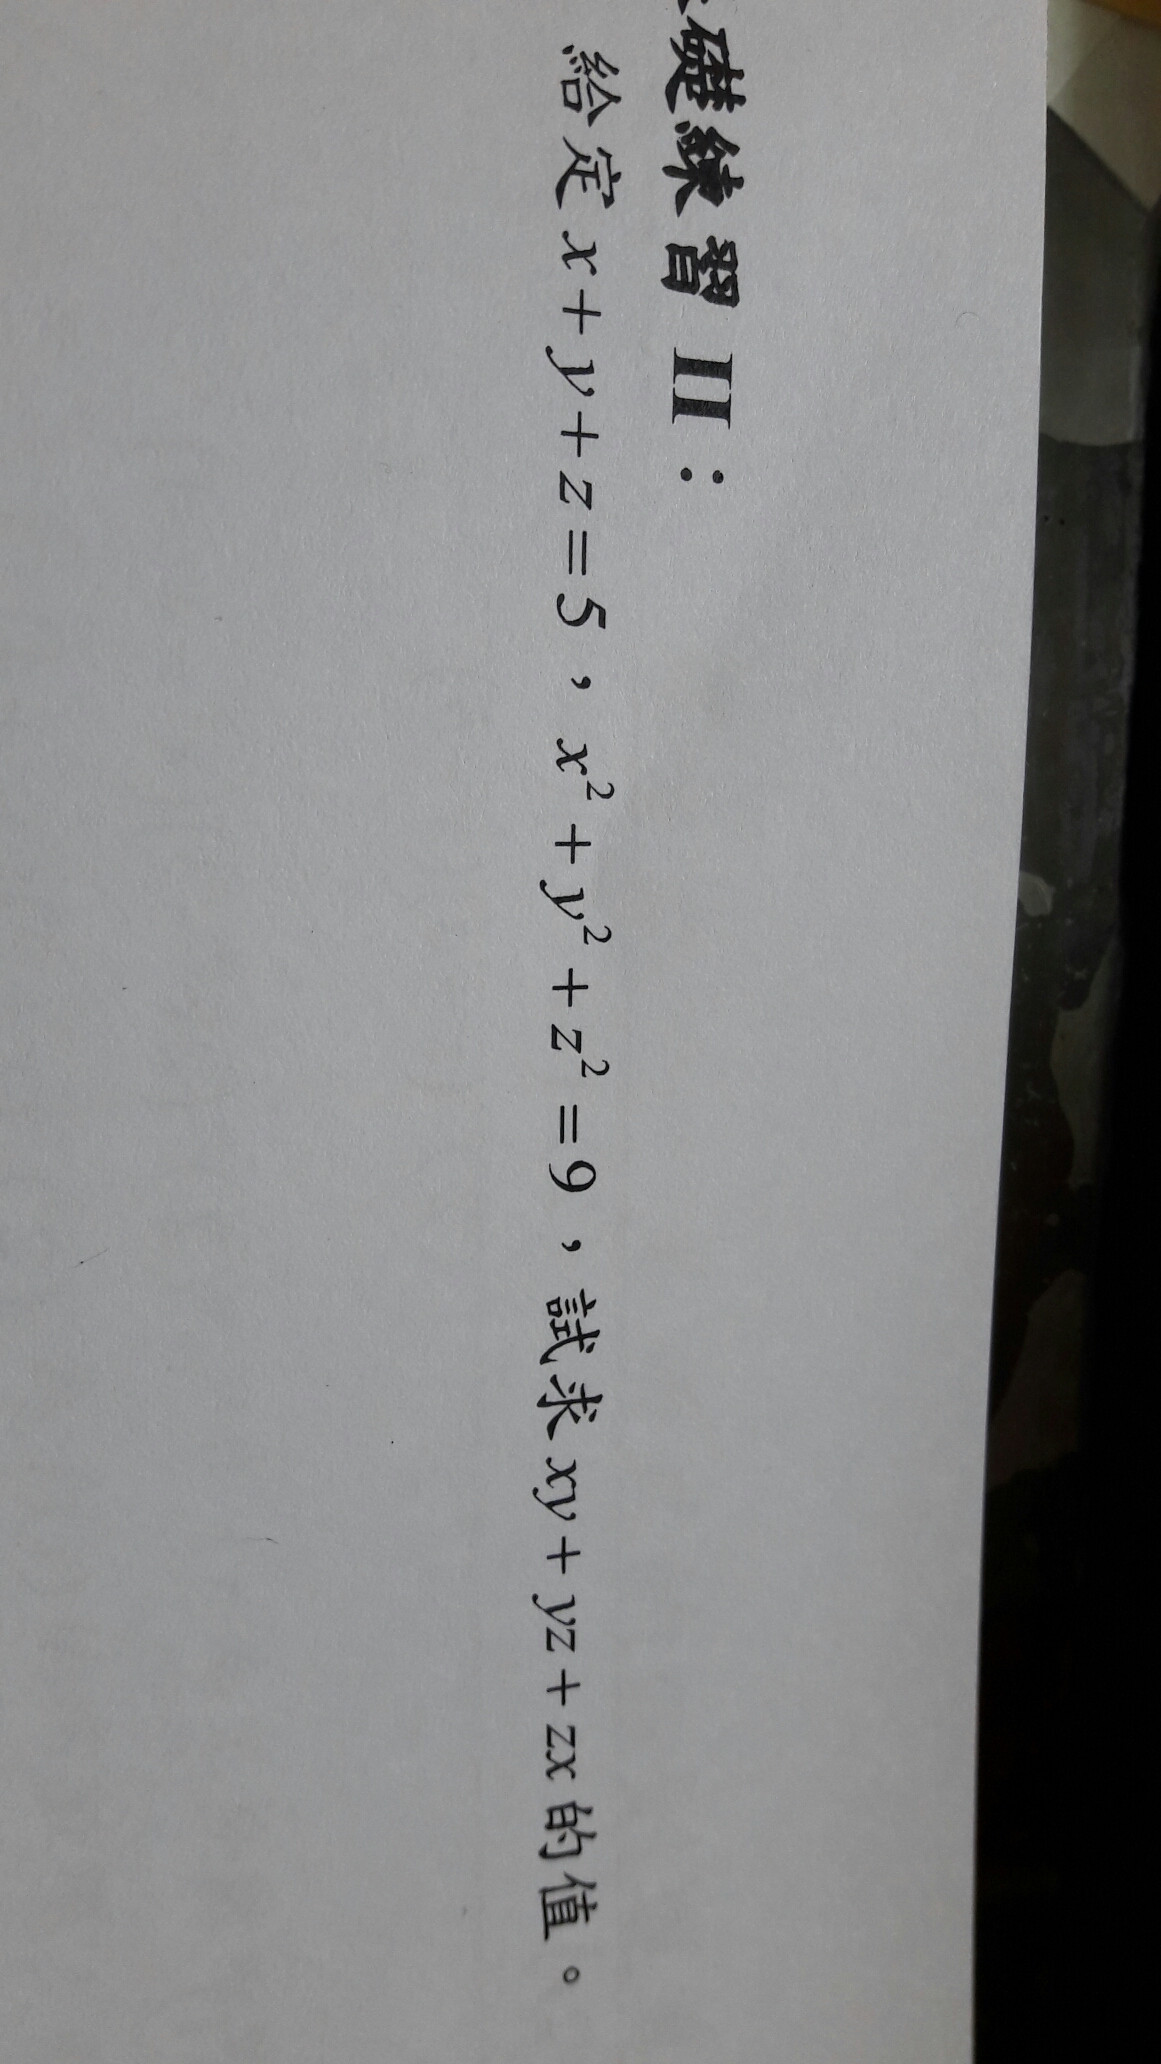 礎練習 II：
給定 x + y + z = 5，x² + y² + z² = 9，試求 xy + yz + zx 的值。